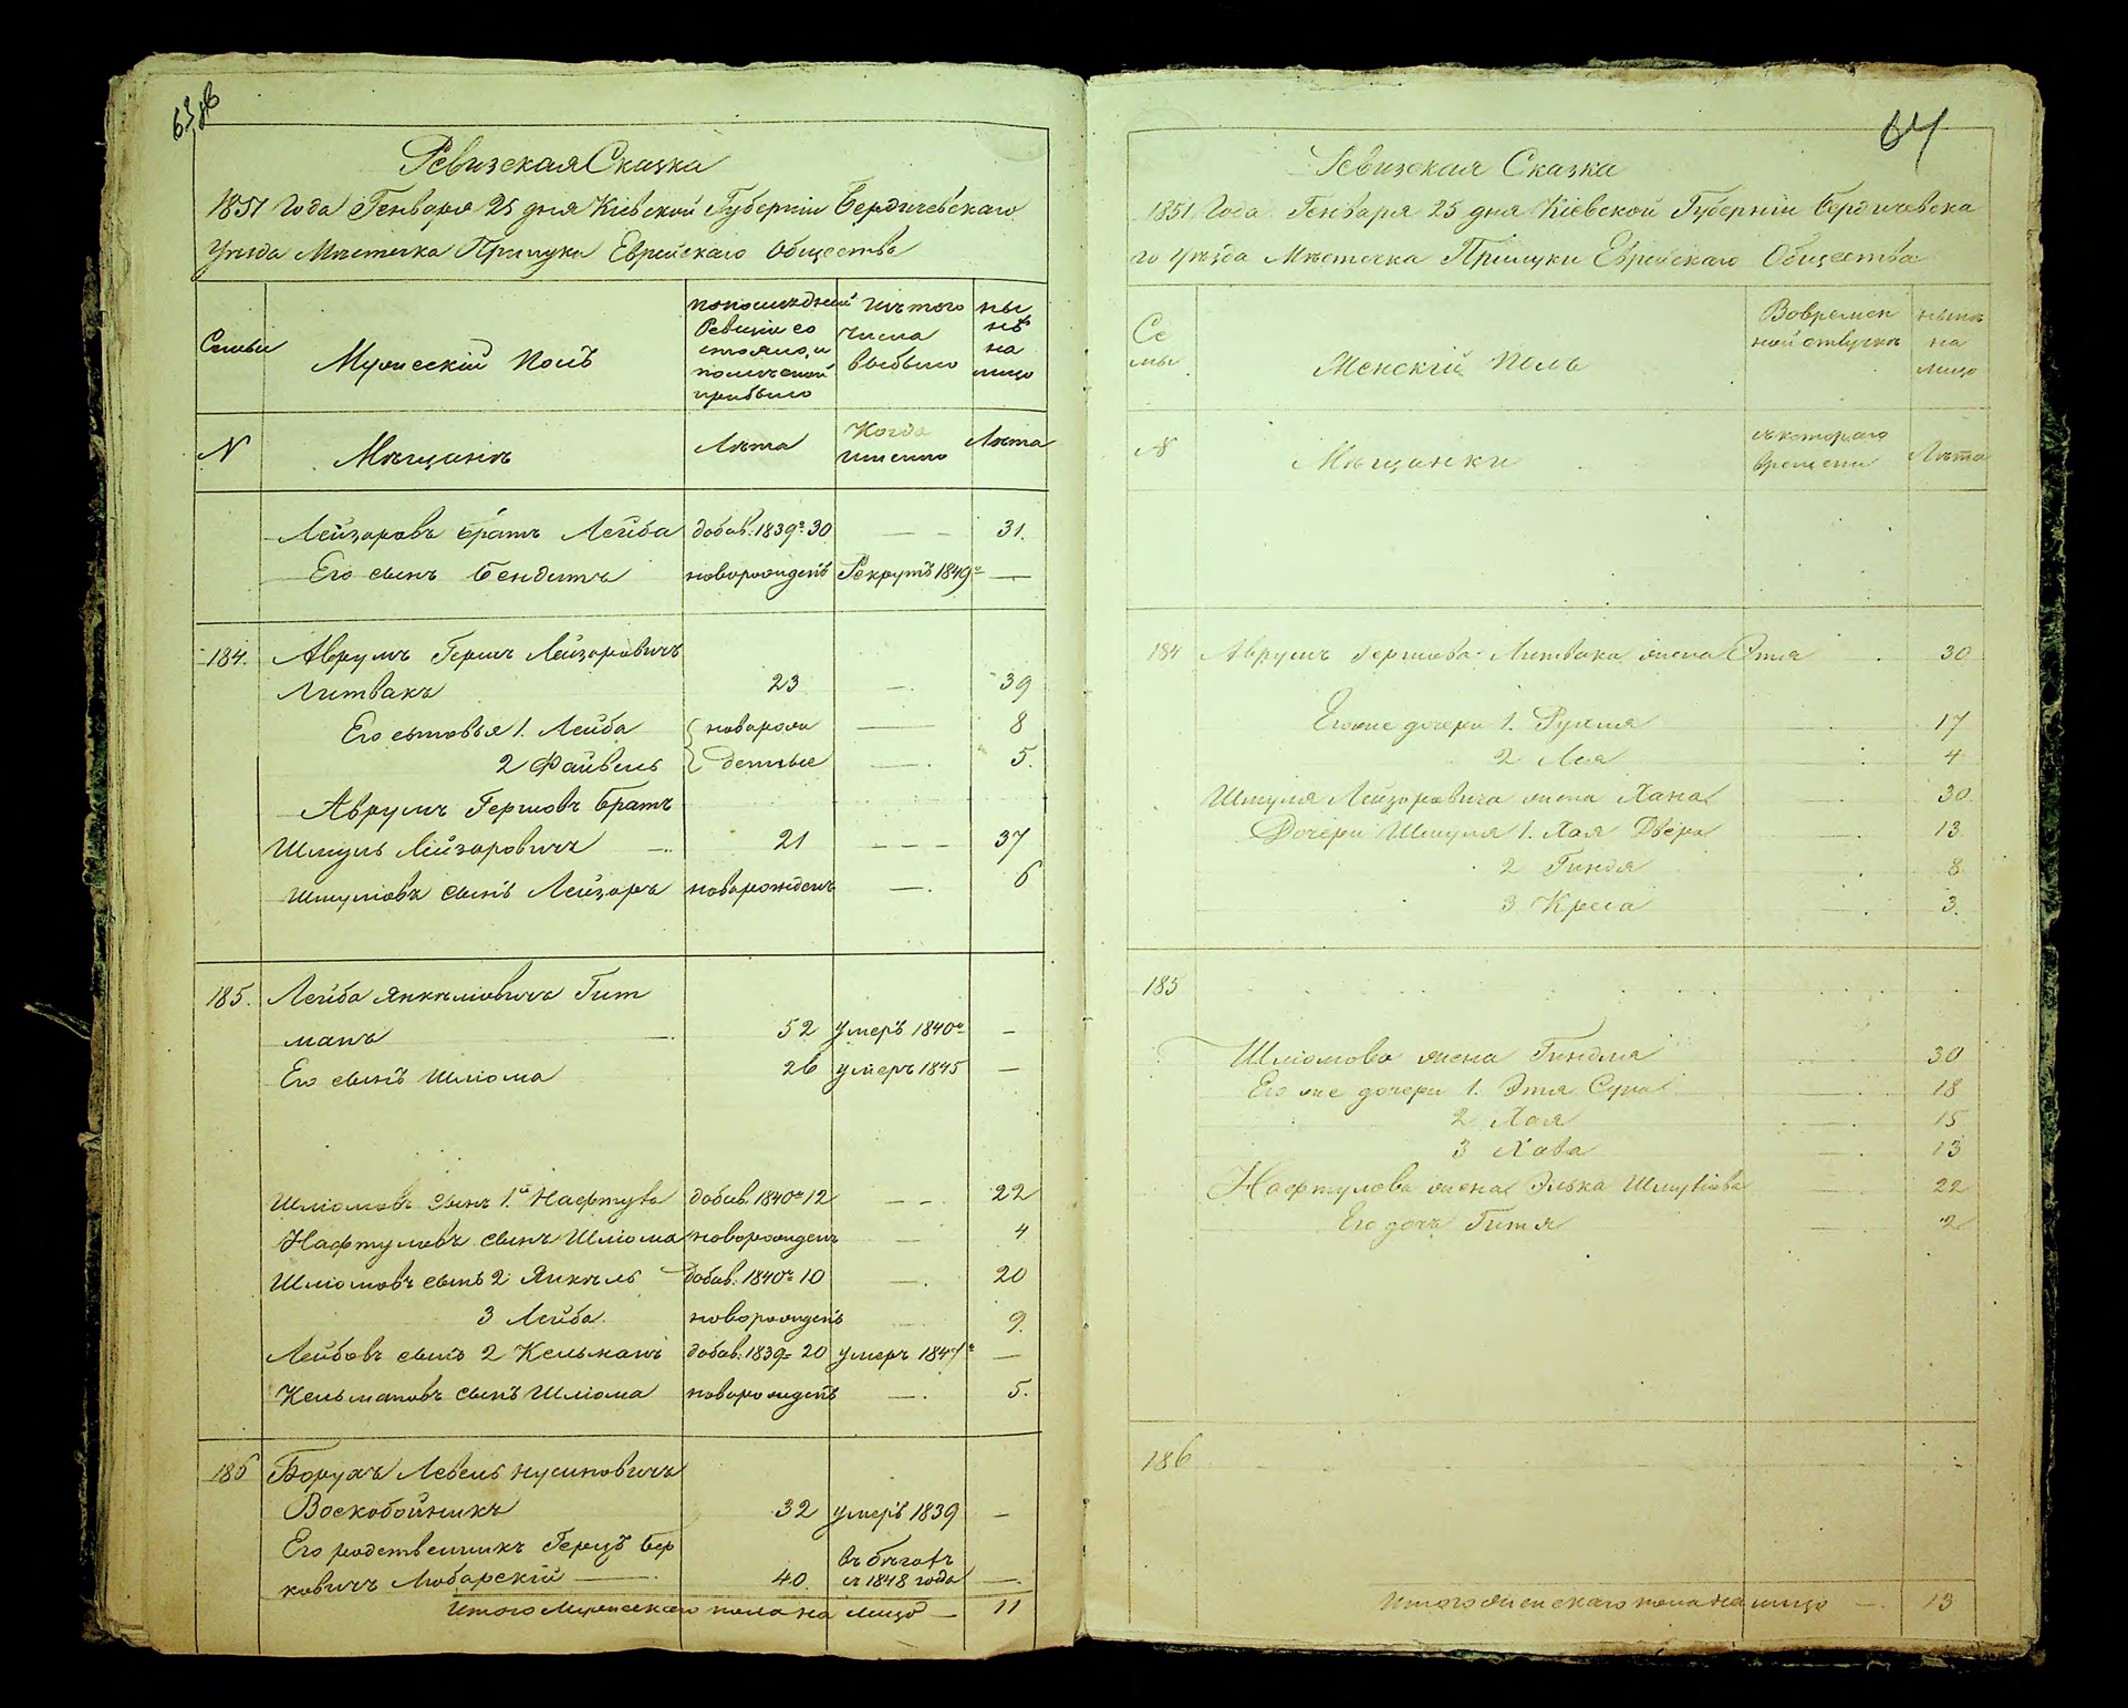 63 об
Ревизская Сказка
1851 года Генваря 25 дня Кіевской Губерніи Бердичевскаго
Уѣзда Мѣстечка Прилуки Еврейскаго Общества
Семьи
Мужескій Полъ
по последней Ревизіи состояло, и после оной прибыло
Изъ того числа выбыло
нынѣ на лицо
N
Мѣщанъ
Лѣта
Когда именно
Лѣта
Лейзоровъ братъ Лейба добав. 1839г. 30 — — 31.
Его сынъ Бендитъ новорожденъ Рекрутъ 1849г. —
184. Аврумъ Гершъ Лейзоровичъ
Литвакъ 23 — 39
Его сыновья 1. Лейба новорож — 8
2 Файвель денные — 5.
Аврумъ Гершовъ братъ
Шмуль Лейзоровичъ — 21 — — — 37
Шмулiовъ сынъ Лейзоръ новорожденъ — 6
185. Лейба Янкелiовичъ Гит
манъ — 52 умеръ 1840г. —
Его сынъ Шліома 26 умеръ 1845 —
Шліомовъ сынъ 1й Нафтула добав. 1840г. 12 — — 22
Нафтуловъ сынъ Шліома новорожденъ — 4
Шліомовъ сынъ 2 Янкель добав. 1840г. 10 — 20
3 Лейба новорожденъ 9.
Лейбовъ сынъ 2 Кельманъ добав. 1839г. 20 умеръ 1847г. —
Кельмановъ сынъ Шліома новорожденъ — 5.
186 Борухъ Левель Нусиновичъ
Воскобойникъ 32 умеръ 1839 —
Его родственникъ Герцъ Бер
ковичъ Любарскій — 40. въ бѣгахъ съ 1848 года —
Итого Мужескаго пола на лицо — 11
64
Ревизская Сказка
1851 Года Генваря 25 дня Кіевской Губерніи Бердичевска
го Уѣзда Мѣстечка Прилуки Еврейскаго Общества
Се
мьи
Женскій Полъ
Во времен
ной отлучкѣ
нынѣ
на
лицо
N
Мѣщанки
съ котораго
времени
Лѣта
184 Аврумъ Гершова Литвака жена Этя 30
Его же дочери 1. Рухля 17
2 Лея 4
Шмуля Лейзоровича жена Хана — 30
Дочери Шмуля 1. Хая Двера — 13
2 Гиндя 8
3 Креса — 3.
185
Шліомова жена Гиндля 30
Его же дочери 1. Этя Сура — 18
2 Хая — 15
3 Хава — 13
Нафтулова жена Элька Шмулiова — 22
Его дочь Гитя — 2
186
Итого женскаго пола на лицо — 13